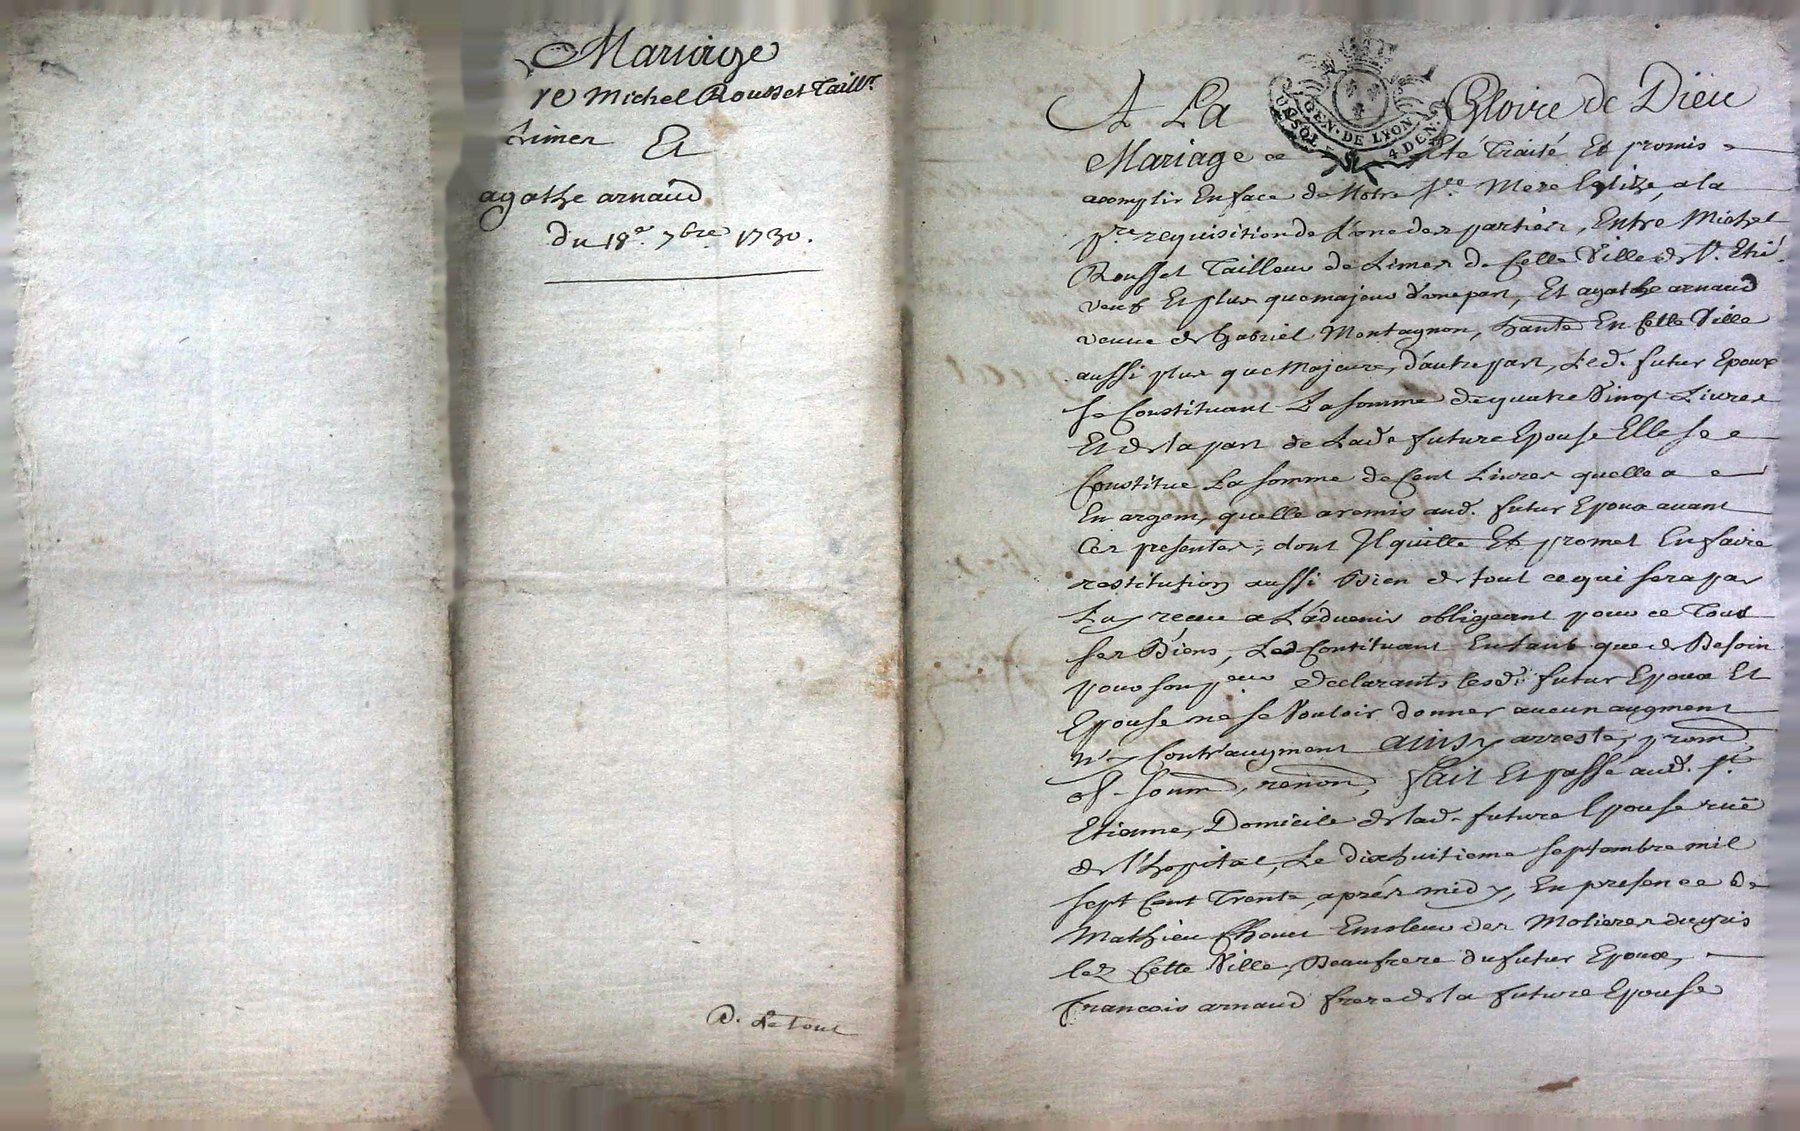 Mariage
re Michel Rousset Taillr.
Limes Et
agathe arnaud
du 18e. 7bre. 1730.
D. Le Tour
A La Gloire de Dieu
GEN. DE LYON
4 DEN.
Mariage a eté Traité Et promis
acomplir En face de Notre Ste. Mere Eglize, a la
pre. requisition de L'une des parties, Entre Michel
Rousset Tailleur de Limes de Cette Ville de St. Etie.
veuf Et plus que majeur d'une part, Et agathe arnaud
veuve de Gabriel Montagnon, hante En Cette Ville
aussi plus que Majeure, d'autre part, Led. futur Epoux
se Constituant La somme de quatre Vingt Livres
Et de la part de Lade. future Epouse Elle se
Constitue La somme de Cent Livres quelle a
En argent, quelle a remis aud. futur Epoux avant
Ces presentes, dont Il quitte Et promet En faire
restitution aussi Bien de tout ce qui sera par
Luy receu a L'advenir obligeant pour ce Tous
ses Biens, Led Contituant En tant que de Besoin
pour son declarants lesd. futur Epoux Et
Epouse ne se Vouloir donner aucun augment
ny Contraugment ainsy arresté, prom
obl. soum, renon, fait Et passé aud. St.
Etienne, Domicile de lad. future Epouse rue
de l'hopital, Le dix huitieme septembre mil
sept Cent Trente, aprés midy, En presence de
Mathieu Emoleur des Molieres
lez Cette Ville, Beaufrere du futur Epoux,
Francois arnaud frere de la future Epouse